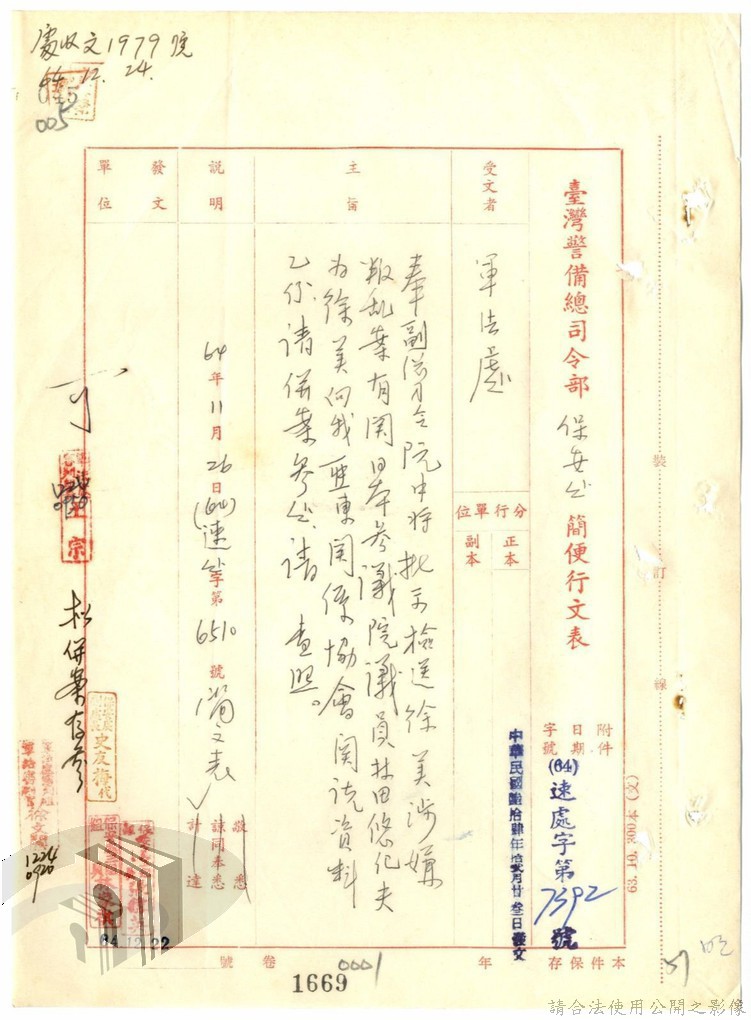 處收文1979號
64.12.24.
005
臺灣警備總司令部 保安處 簡便行文表
受文者
軍法處
分行單位
正本
副本
附件
日期
字號
(64)速處字第7392號
中華民國陸拾肆年拾貳月廿叁日發文
主旨
奉副總司令阮中將批示檢送徐美涉嫌
叛乱案有関日本参議院議員林田悠紀夫
为徐美向我亞東関係協會関説資料
乙份請併案参處請查照。
說明
64年11月26日(64)速 字第6510號簡文表
敬悉
諒同奉悉
計達
發文
單位
可
擬併案存參
史友梅代
1224
0920
64 12 22
本件保存 年
卷 號
0001
1669
裝
訂
線
63.10.300本(文)
請合法使用公開之影像